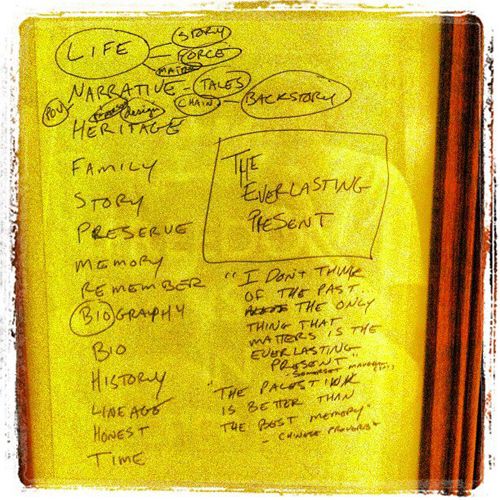 LIFE
STORY
FORCE
MATRIX
NARRATIVE - TALES
CHAIN - BACKSTORY
POV
design
HERITAGE
FAMILY
STORY
PRESERVE
MEMORY
REMEMBER
BIOGRAPHY
BIO
HISTORY
LINEAGE
HONEST
TIME
THE
EVERLASTING
PRESENT
"I DON'T THINK
OF THE PAST..
THE ONLY
THING THAT
MATTERS IS THE
EVERLASTING
PRESENT"
SOMERSET MAUGHAM
"THE PALEST INK
IS BETTER THAN
THE BEST MEMORY"
- CHINESE PROVERB